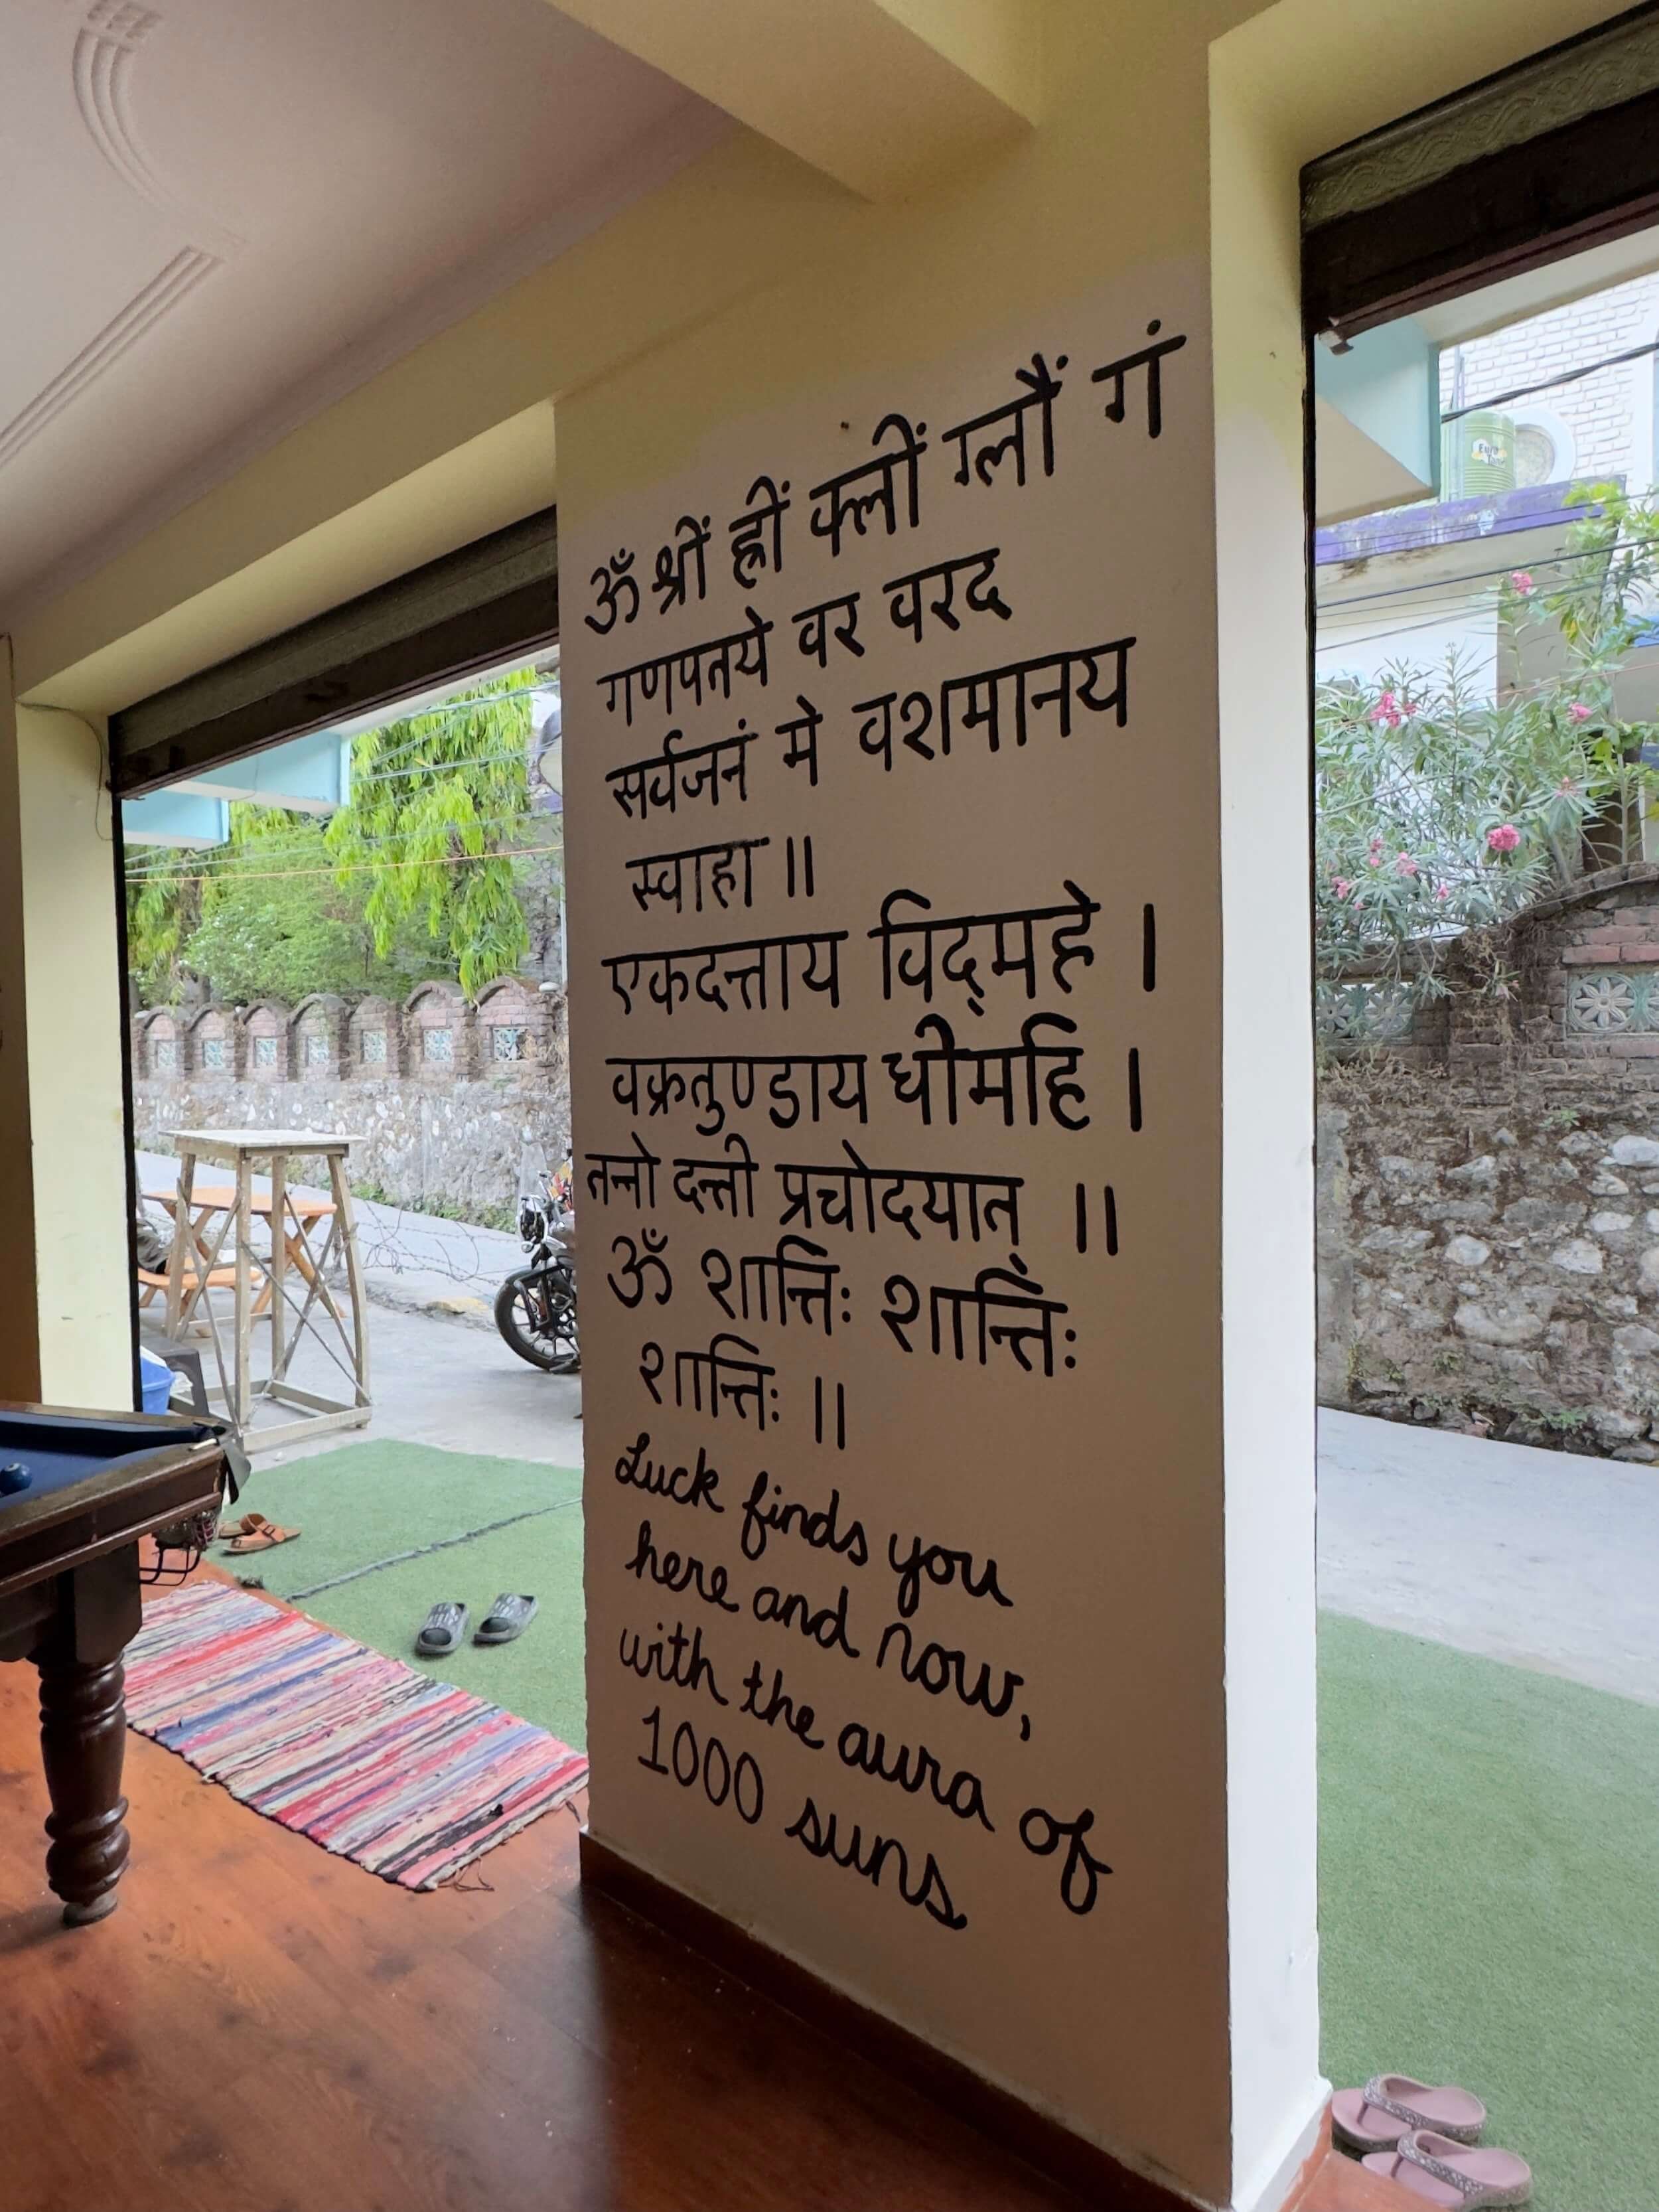 ॐ श्रीं ह्रीं क्लीं ग्लौं गं
गणपतये वर वरद
सर्वजनं मे वशमानय
स्वाहा ॥
एकदन्ताय विद्महे ।
वक्रतुण्डाय धीमहि ।
तन्नो दन्ती प्रचोदयात् ॥
ॐ शान्तिः शान्तिः
शान्तिः ॥
Luck finds you
here and now,
with the aura of
1000 suns